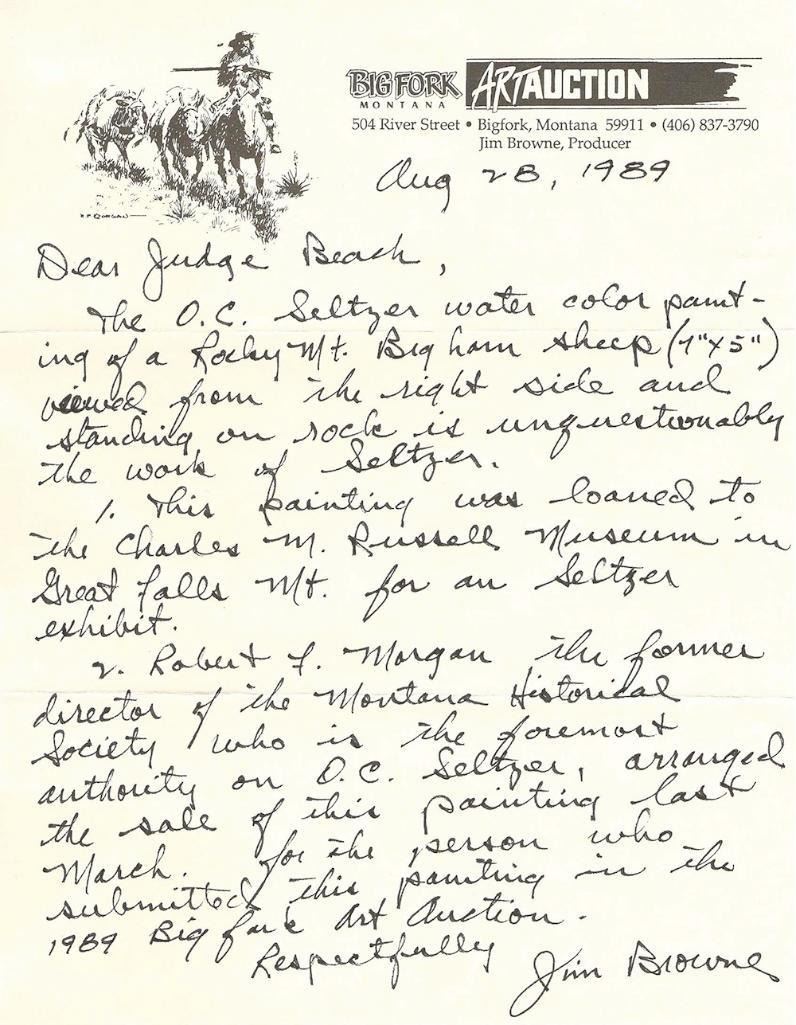 BIGFORK ART AUCTION
MONTANA
504 River Street • Bigfork, Montana 59911 • (406) 837-3790
Jim Browne, Producer
Aug 28, 1989
R F MORGAN
Dear Judge Beach,
The O.C. Seltzer water color paint-
ing of a Rocky Mt. Big horn sheep (7"x5")
viewed from the right side and
standing on rock is unquestionably
the work of Seltzer.
1. This painting was loaned to
the Charles M. Russell Museum in
Great Falls Mt. for an Seltzer
exhibit.
2. Robert F. Morgan the former
director of the Montana Historical
Society who is the foremost
authority on O.C. Seltzer, arranged
the sale of this painting last
March. for the person who
submitted this painting in the
1989 Big fork Art Auction.
Respectfully
Jim Browne